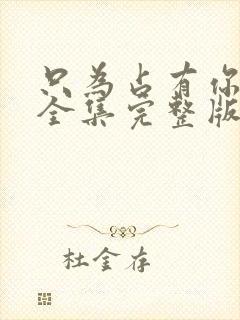 只为占有你
全集完整版
杜金存